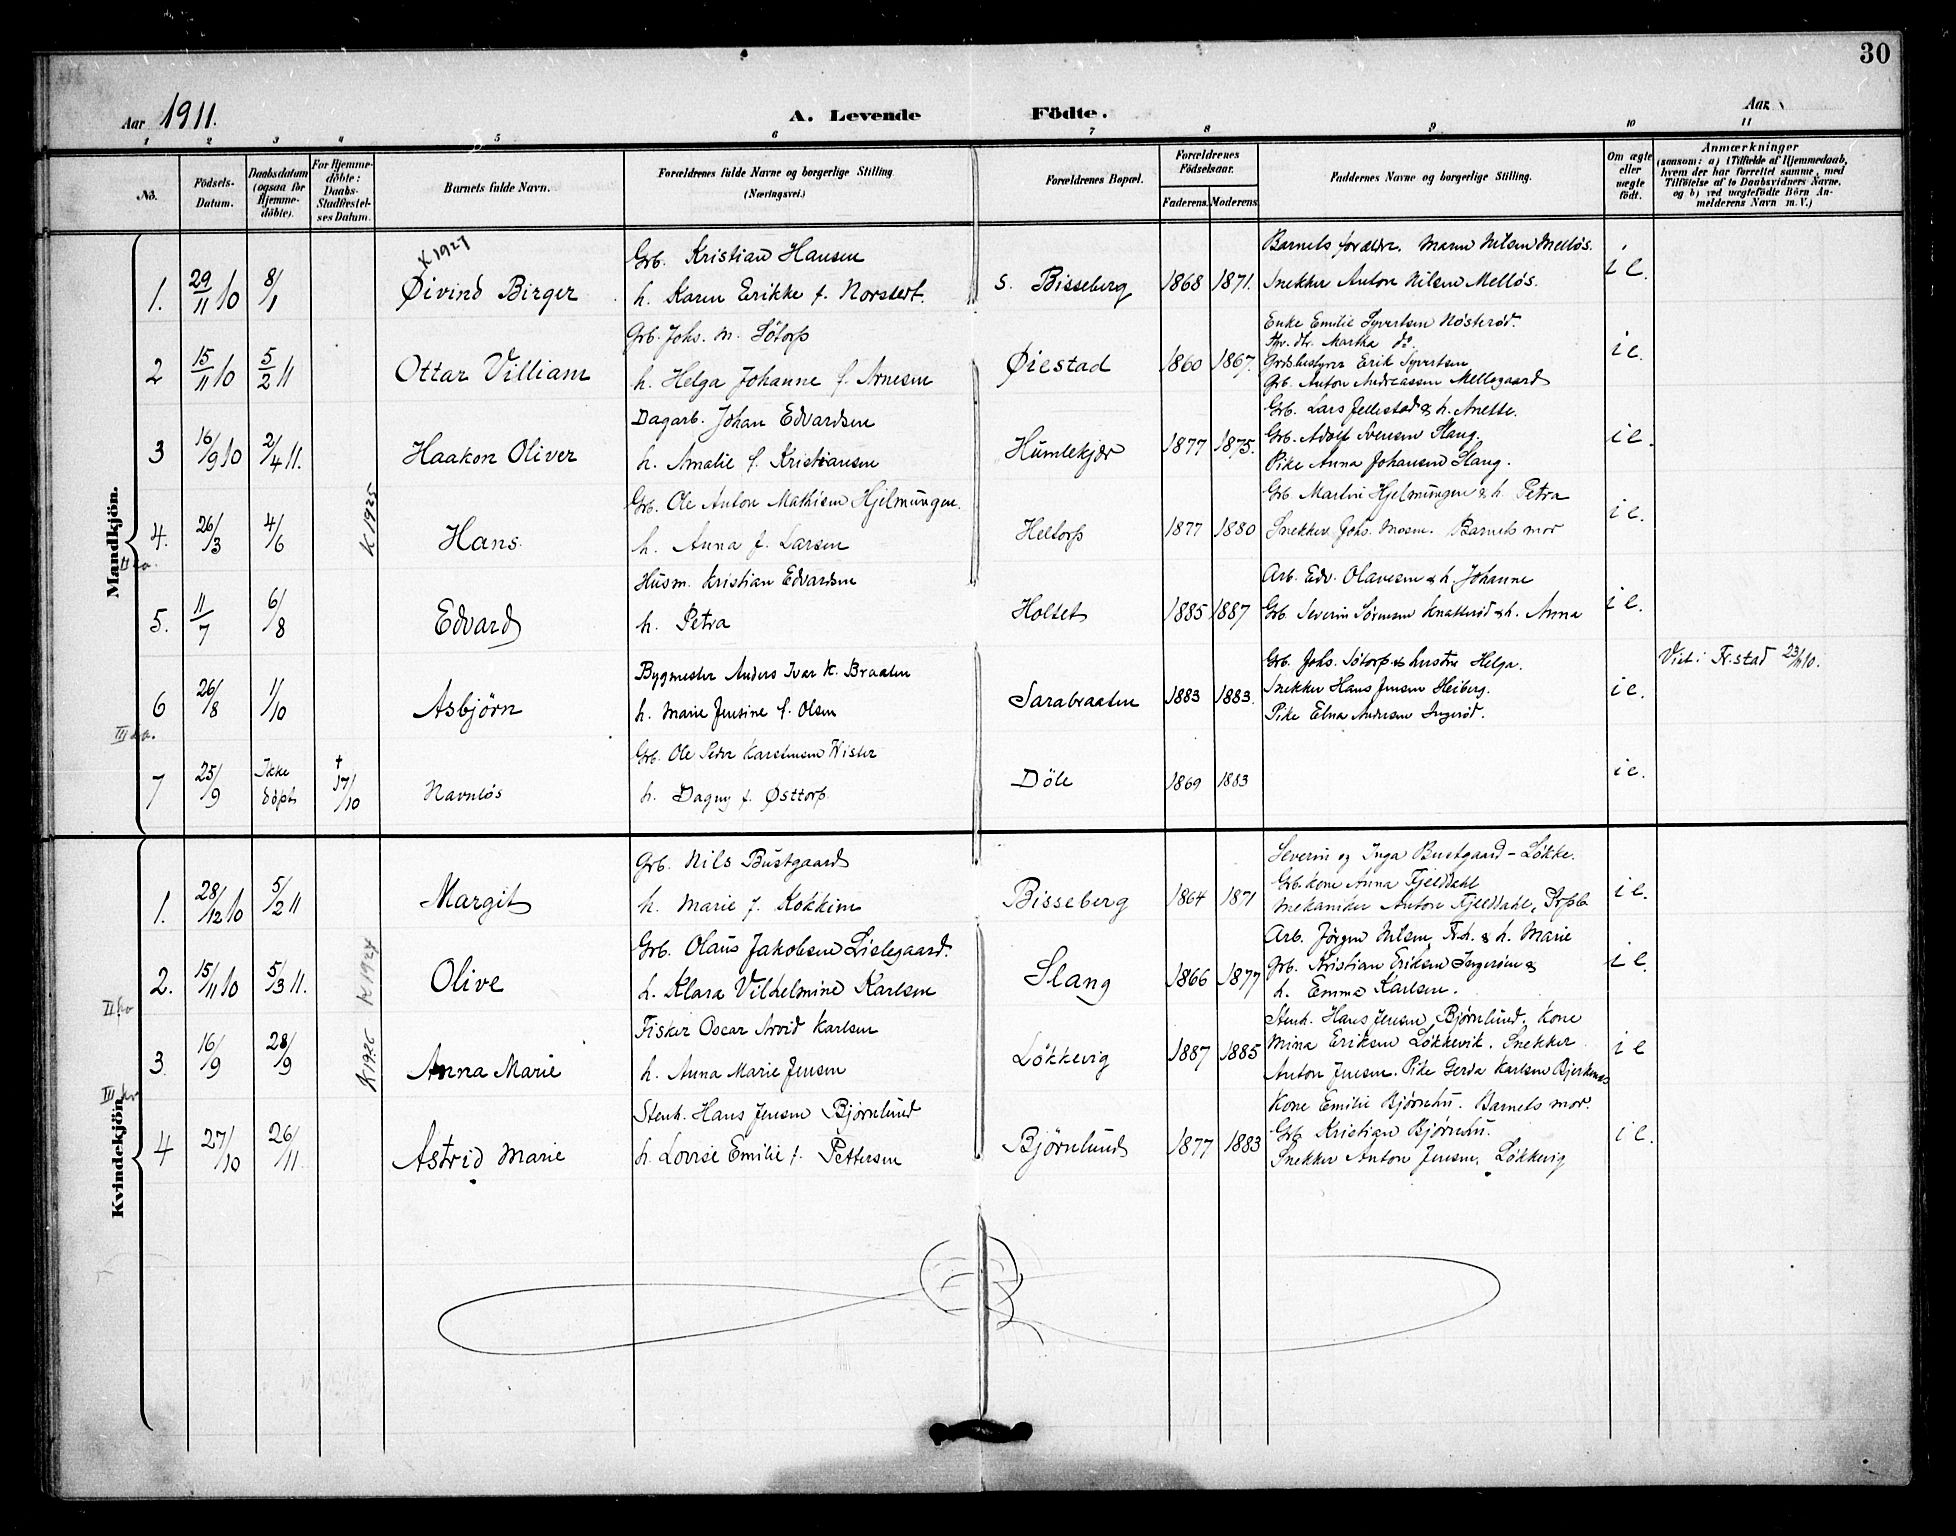 30
Aar 1911.
A. Levende Födte.
Aar
1 2 3 4 5 6 7 8 9 10 11
No.
Födsels-Datum.
Daabsdatum (ogsaa for Hjemmedöbte).
For Hjemmedöbte: Daabs-Stadfæstelses Datum.
Barnets fulde Navn.
Forældrenes fulde Navne og borgerlige Stilling (Næringsvei.)
Forældrenes Bopæl.
Forældrenes Födselsaar.
Faderens. Moderens.
Faddernes Navne og borgerlige Stilling.
Om ægte eller uægte födt.
Anmærkninger
(saasom: a) i Tilfælde af Hjemmedaab,
hvem der har forrettet samme, med
Tilföielse af to Daabsvidners Navne,
og b) ved uægtefödte Börn Anmelderens Navn m. V.)
Mandkjön.
K 1927
Grb. Kristian Hansen
Barnets forældre. Mann Nilsen Melløs.
1. 29/11 10 8/1 Øivind Birger h. Karen Erikke f. Norstert. S. Bisseberg 1868 1871. Snekker Anton Nilsen Melløs. i e.
Grb. Johs. M. Sötorp
Enke Emilie Syvertsen Nøsterød.
Martha do.
2 15/11 10 5/2 11 Ottar Villiam h. Helga Johanne f. Arnesen Øiestad 1860 1867. Grdsbestyrer Erik Syvertsen i e.
Grb. Anton Andreassen Mellegaard
Dagarb. Johan Edvardsen
Grb. Lars Jellestad & h. Anette.
3 16/9 10 2/4 11. Haakon Oliver h. Amalie f. Kristiansen Humlekjær 1877 1875. Grb. Adolf Svensen Slang. i e.
Pike Anna Johansen Slang.
Grb. Ole Anton Mathisen Hjelmungen.
Grb Martin Hjelmungen & h. Petra
4. 26/3 4/6 K 1925 Hans. h. Anna f. Larsen Heltorp 1877 1880 Snekker Johs. Mosen. Barnets mor i e.
Husm. Kristian Edvardsen
Arb. Edv. Olavesen & h. Johanne
5. 11/7 6/8 Edvard h. Petra Holtet 1885 1887 Grb. Severin Sörensen Knatterød & h. Anna i e.
Bygmester Anders Ivar K. Braaten
Grb. Johs. Sötorp & hustru Helga.
Viet i Fr.stad 23/ 10.
6 26/8 1/10 Asbjörn h. Marie Jensine f. Olsen Sarabraaten 1883 1883. Snekker Hans Jensen Heiberg. i e.
Pike Elna Andersen Ingerød.
Grb. Ole Peder Karstensen Wister
7 25/9 Ikke döpt † 17/10 Navnløs h. Dagny f. Østtorp. Döle 1869 1883 i e.
Kvindekjön
Grb. Nils Bustgaard
Severin og Inga Bustgaard - Løkke.
Grb. kone Anna Fjelldahl
1. 28/12 10 5/2 11 Margit h. Marie f. Kokkim Bisseberg 1864 1871 Mekaniker Anton Fjelldahl, i e.
Grb. Olaus Jakobsen Lislegaard.
Arb. Jörgen Nilsen, Fr.h. & h. Marie
2. 15/11 10 5/3 11. K 1924 Olive h. Klara Vilhelmine Karlsen Slang 1866 1877 Grb. Kristian Eriksen Ingerøen & i e.
h. Emma Karlsen.
Fisker Oscar Arvid Karlsen
Stenh. Hans Jensen, Björnlund, Kone
3. 16/9 28/9 K 1926 Anna Marie h. Anna Marie Jensen Løkkevig 1887 1885 Mina Eriksen Løkkevik. Snekker i e
Anton Jensen. Pike Gerda Karlsen Bjerkenæs
Stenh. Hans Jensen Bjørnlund
Kone Emilie Bjørnhu. Barnets mor.
4 27/10 26/11 Astrid Marie h. Lovise Emilie f. Pettersen Björnlund 1877 1883 Grb Kristian Bjørnhu. i e.
Snekker Anton Jensen, Løkkevig